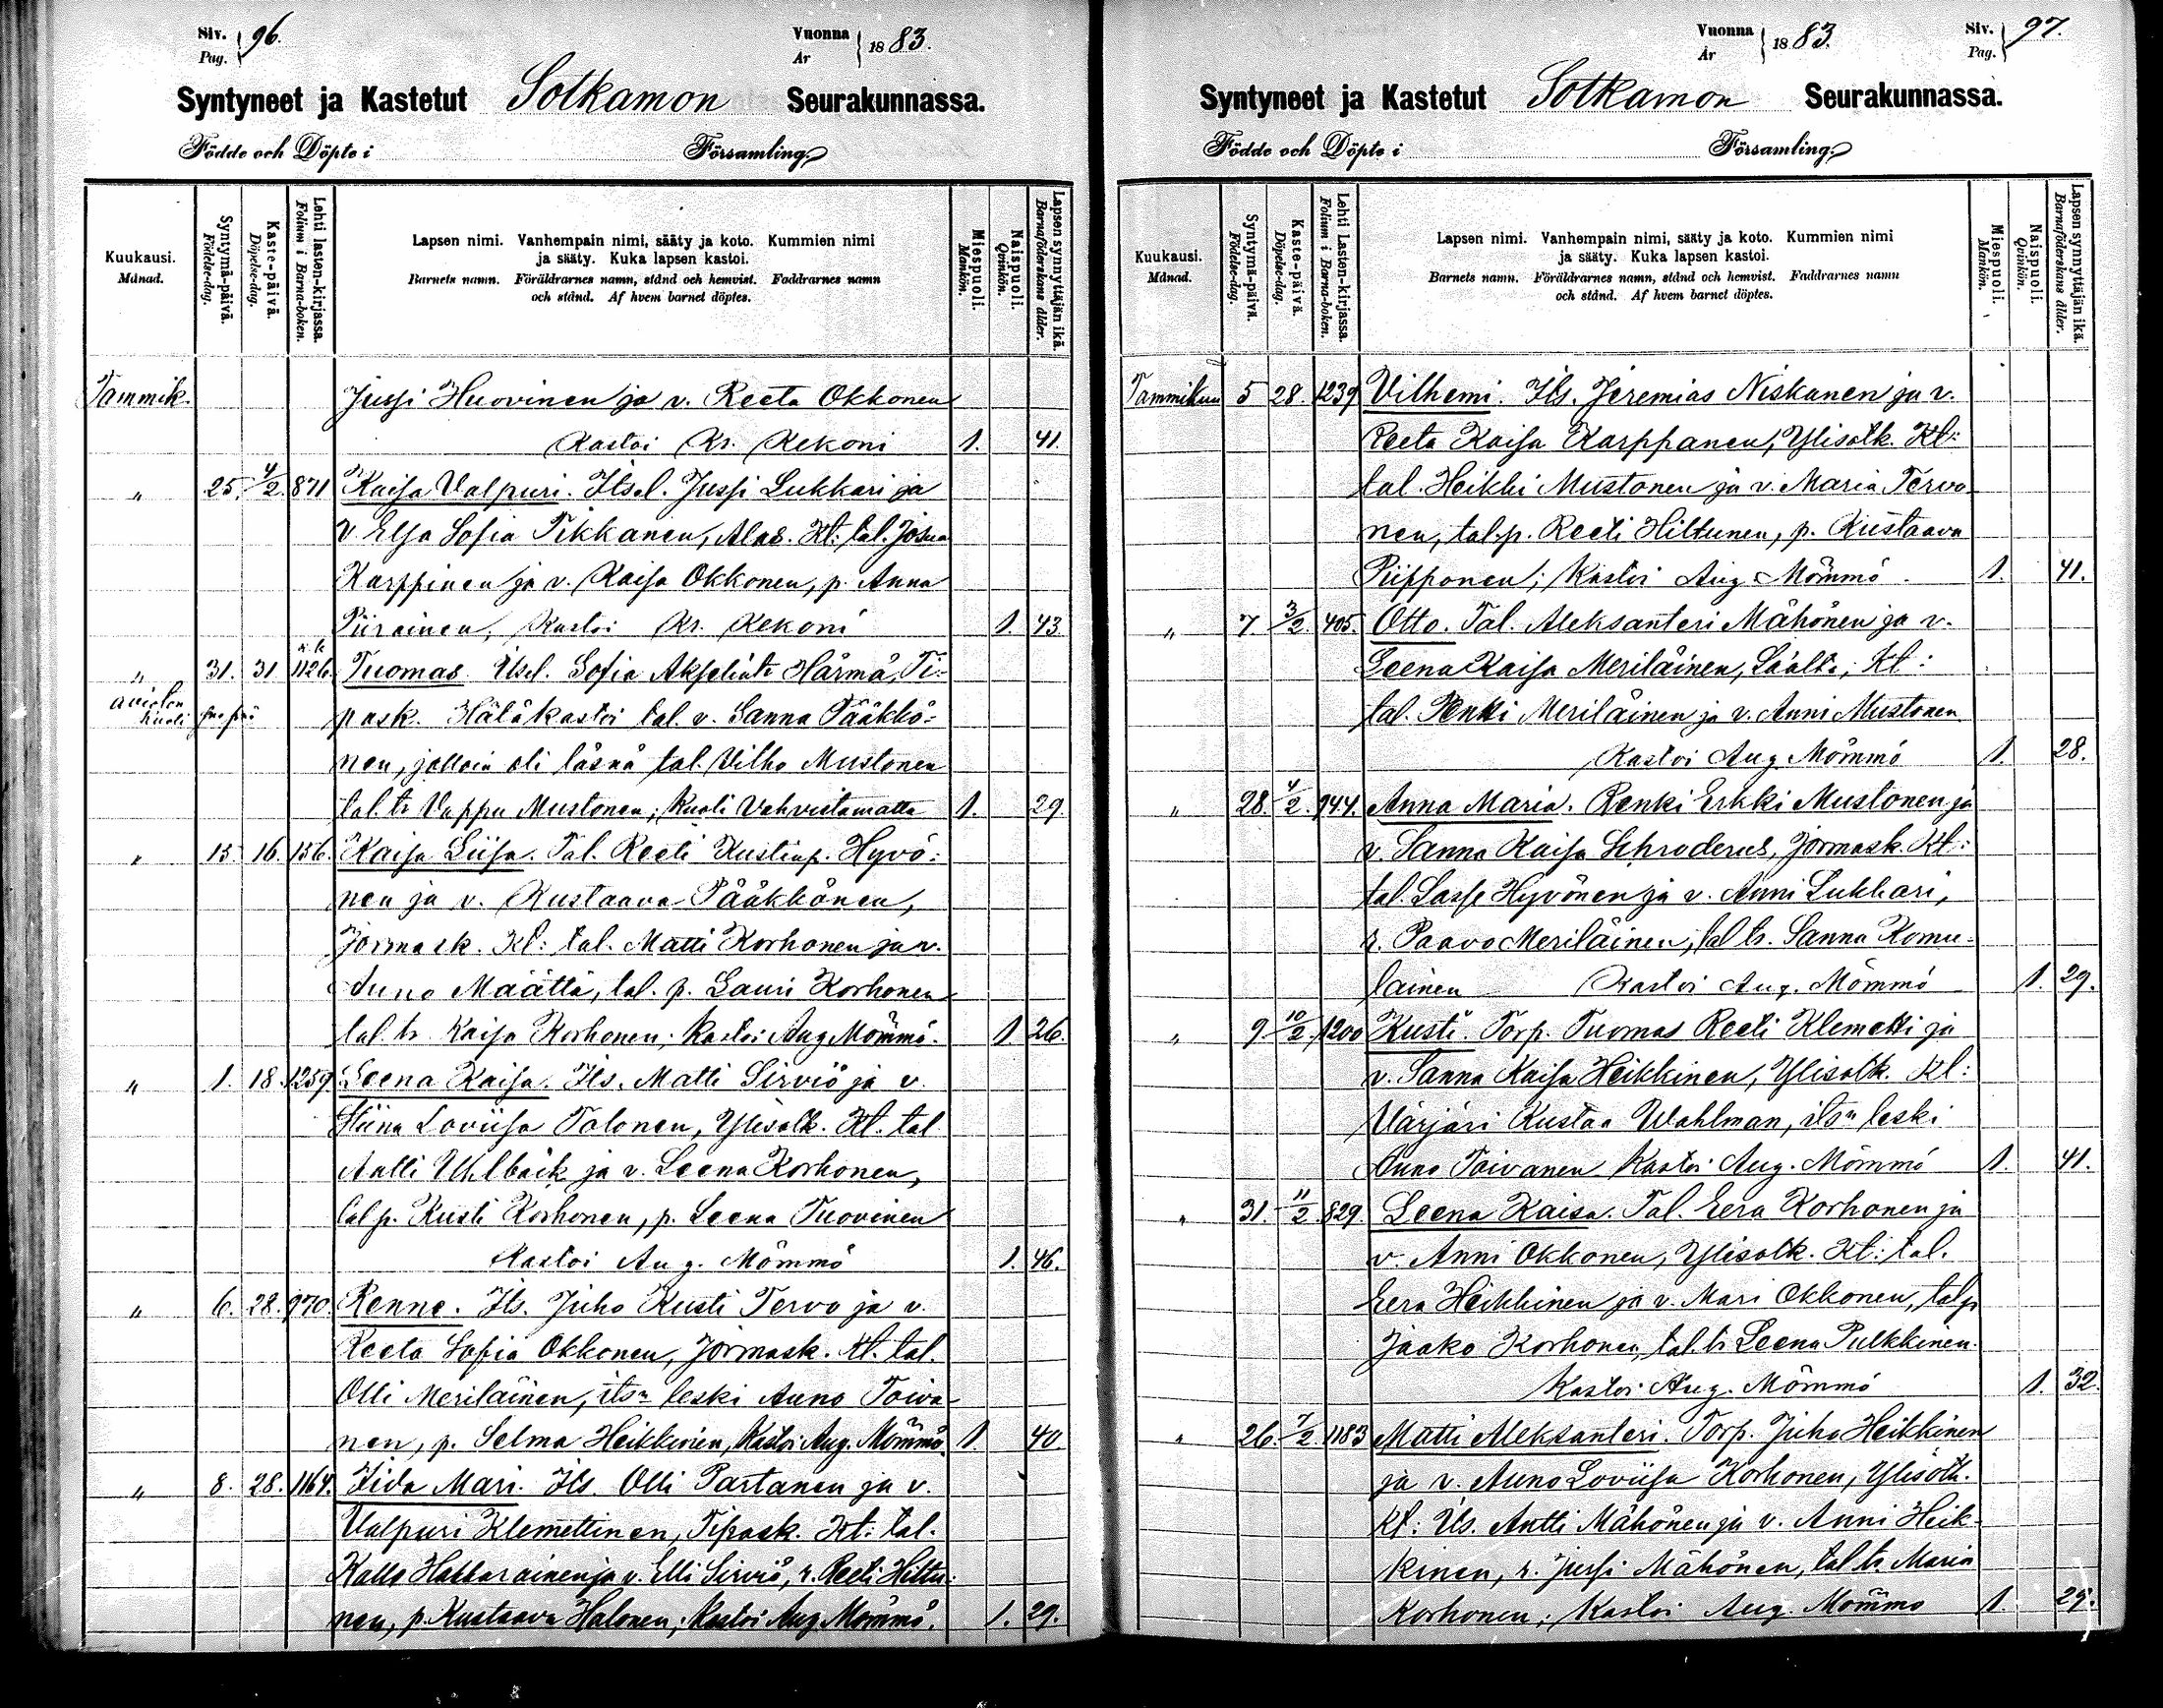 Siv. Pag. 96.
Vuonna År 1883.
Syntyneet ja Kastetut Sotkamon Seurakunnassa.
Födde och Döpte i Församling.
Kuukausi. Månad.
Syntymä-päivä. Födelse-dag.
Kaste-päivä. Döpelse-dag.
Lehti lasten-kirjassa. Folium i Barna-boken.
Lapsen nimi. Vanhempain nimi, sääty ja koto. Kummien nimi
ja sääty. Kuka lapsen kastoi.
Barnets namn. Föräldrarnes namn, stånd och hemvist. Faddrarnes namn
och stånd. Af hvem barnet döptes.
Miespuoli. Mankön.
Naispuoli. Qvinkön.
Lapsen synnyttäjän ikä. Barnaföderskans ålder.
Tammik. Jussi Huovinen ja v. Reeta Okkonen
Kastoi Kr. Kekoni 1. 41.
" 25. 4/2. 871 Kaisa Valpuri. Itsel. Jussi Lukkari ja
v. Elsa Sofia Tikkanen, Alas. Kt: tal. Josua
Karppinen ja v. Kaisa Okkonen, p. Anna
Piirainen, Kastoi Kr. Kekoni 1. 43.
" 31. 31 1126. Tuomas. Itsel. Sofia Akselint: Härmä, Ti-
pask. Hätäkastoi tal. v. Sanna Pääkkö-
nen, jolloin oli läsnä tal. Vilho Mustonen
tal. tr Vappu Mustonen; Kuoli Vahvistamatta 1. 29.
" 15. 16. 156. Kaisa Liisa. Tal. Reeti Kustinp. Hyvö-
nen ja v. Kustaava Pääkkönen,
Jormask. Kt: tal. Matti Korhonen ja v.
Auno Määttä, tal. p. Lauri Korhonen
tal. tr Kaisa Korhonen; Kastoi Aug Mömmö. 1 26.
" 1. 18. 1259. Leena Kaisa. Its. Matti Sirviö ja v.
Stiina Loviisa Tolonen, Ylisotk. Kt. tal.
Antti Uhlbäck ja v. Leena Korhonen,
tal p. Kusti Korhonen, p. Leena Tuovinen
Kastoi Aug. Mömmö 1. 46.
" 6. 28. 970. Renne. Its. Juho Kusti Tervo ja v.
Reeta Sofia Okkonen, Jormask. Kt. tal.
Olli Meriläinen, itsn leski Auno Toiva-
nen, p. Selma Heikkinen, Kastoi Aug. Mömmö. 1. 40.
" 8. 28. 1164. Iida Mari. Its. Olli Partanen ja v.
Valpuri Klemettinen, Tipask. Kt: tal.
Kalle Hakkarainen ja v. Elli Sirviö, r. Reeti Hiltu-
nen, p. Kustaava Halonen; Kastoi Aug Mömmö. 1. 29.
Vuonna År 1883.
Siv. Pag. 97.
Syntyneet ja Kastetut Sotkamon Seurakunnassa.
Födde och Döpte i Församling.
Kuukausi. Månad.
Syntymä-päivä. Födelse-dag.
Kaste-päivä. Döpelse-dag.
Lehti Lasten-kirjassa. Folium i Barna-boken.
Lapsen nimi. Vanhempain nimi, sääty ja koto. Kummien nimi
ja sääty. Kuka lapsen kastoi.
Barnets namn. Föräldrarnes namn, stånd och hemvist. Faddrarnes namn
och stånd. Af hvem barnet döptes.
Miespuoli. Mankön.
Naispuoli. Qvinkön.
Lapsen synnyttäjän ikä. Barnaföderskans ålder.
Tammikuu 5 28. 1239 Vilhemi. Its. Jeremias Niskanen ja v.
Reeta Kaisa Karppanen, Ylisotk. Kt:
tal. Heikki Mustonen ja v. Maria Tervo-
nen, tal. p. Reeti Hiltunen, p. Kustaava
Piipponen; Kastoi Aug Mömmö. 1. 41.
" 7. 3/2. 405. Otto. Tal. Aleksanteri Mähönen ja v.
Leena Kaisa Meriläinen, Kt:
tal. Penkki Meriläinen ja v. Anni Mustonen
Kastoi Aug Mömmö 1. 28.
" 28. 4/2. 944. Anna Maria. Renki Erkki Mustonen ja
v. Sanna Kaisa Schroderus, Jormask. Kt:
tal. Lasse Hyvönen ja v. Anni Lukkari,
r. Paavo Meriläinen, tal tr. Sanna Komu-
lainen Kastoi Aug. Mömmö 1. 29.
" 9. 10/2. 1200 Kusti. Torp. Tuomas Reeti Klemetti ja
v. Sanna Kaisa Heikkinen, Ylisotk. Kt:
Värjäri Kustaa Wahlman, itsn leski
Auno Toivanen Kastoi Aug. Mömmö 1. 41.
" 31. 11/2. 829. Leena Kaisa. Tal. Eera Korhonen ja
v. Anni Okkonen, Ylisotk. Kt: tal.
Eera Heikkinen ja v. Mari Okkonen, tal p
Jaako Korhonen, tal. tr Leena Pulkkinen.
Kastoi Aug. Mömmö 1. 32.
" 26. 7/2. 1183 Matti Aleksanteri. Torp. Juho Heikkinen
ja v. Auno Loviisa Korhonen, Ylisotk.
Kt: Its. Antti Mähönen ja v. Anni Heik-
kinen, r. Jussi Mähönen, tal tr. Maria
Korhonen; Kastoi Aug. Mömmö 1. 29.